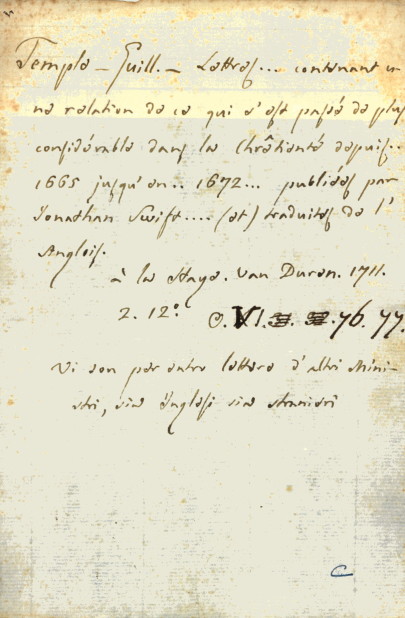 Temple - Guill. - Lettres... contenant u-
ne relation de ce qui s'est passé de plus
considérable dans la Chrêtienté depuis..
1665 jusqu'en.. 1672... publiées par
Jonathan Swift.... (et) traduites de l'
Anglois.
à la Haye. Van Duren. 1711.
2. 12°. O.VI. 76. 77.
Vi son per entro lettere d'altri Mini-
stri, sia Inglesi sia stranieri
C